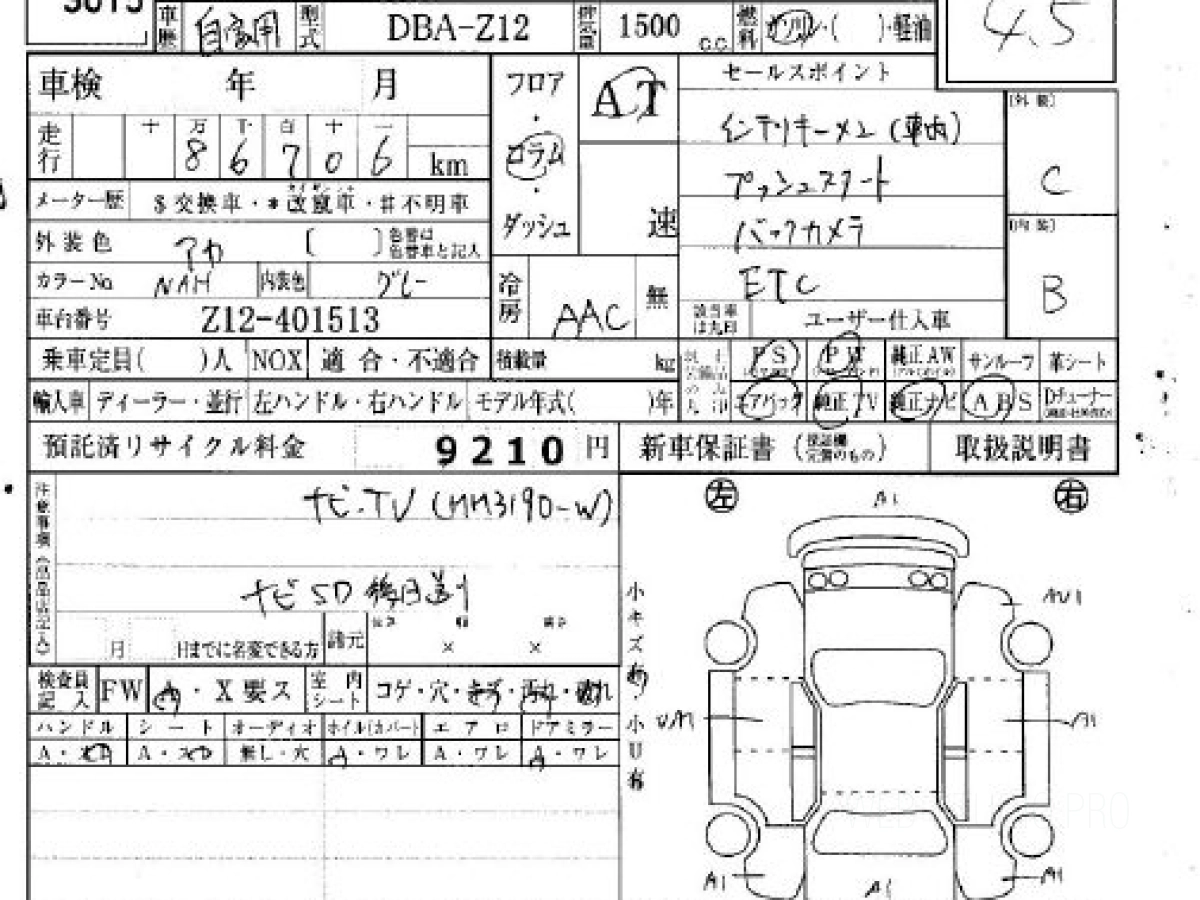 5015
車歴 自家用 型式 DBA-Z12 排気量 1500 c.c. 燃料 ガソリン・( )・軽油 4.5
車検 年 月
フロア・コラム・ダッシュ
AT
速
セールスポイント
インテリキーメン(車内)
プッシュスタート
バックカメラ
ETC
[外装]
C
[内装]
B
走行 十 万 千 百 十 一
8 6 7 0 6 km
メーター歴 $交換車・*改竄車・#不明車
外装色 アカ [ ] 色替は色替車と記入
カラーNo NAH 内装色 グレー
冷房 AAC 無
車台番号 Z12-401513
該当車は丸印 ユーザー仕入車
乗車定員( )人 NOX 適合・不適合 積載量 kg
PS PW 純正AW サンルーフ 革シート
輸入車 ディーラー・並行 左ハンドル・右ハンドル モデル年式( )年
エアバッグ 純正TV 純正ナビ ABS Dチューナー
預託済リサイクル料金 9210 円 新車保証書 (保証欄完備のもの) 取扱説明書
注意事項
ナビ・TV (MM319D-W)
ナビSD 後日送り
月 日までに名変できる方 諸元 × ×
検査員記入 FW A・X要ス 室内シート コゲ・穴・キズ・汚れ・破れ
ハンドル シート オーディオ ホイル(カバー) エアロ ドアミラー
A・スレ A・スレ 無し・穴 A・ワレ A・ワレ A・ワレ
左 A1 右
小キズ有り 小U有
AU1
A1
A1 A1 A1
PRO